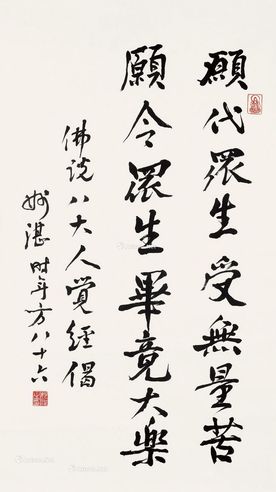 願代眾生受無量苦
願令眾生畢竟大樂
佛說八大人覺經偈
妙湛時年方八十六